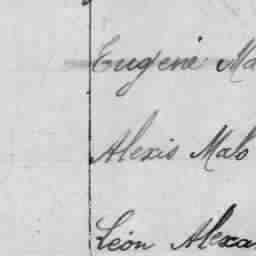 Eugène Ma
Alexis Malo
Léon Alexa